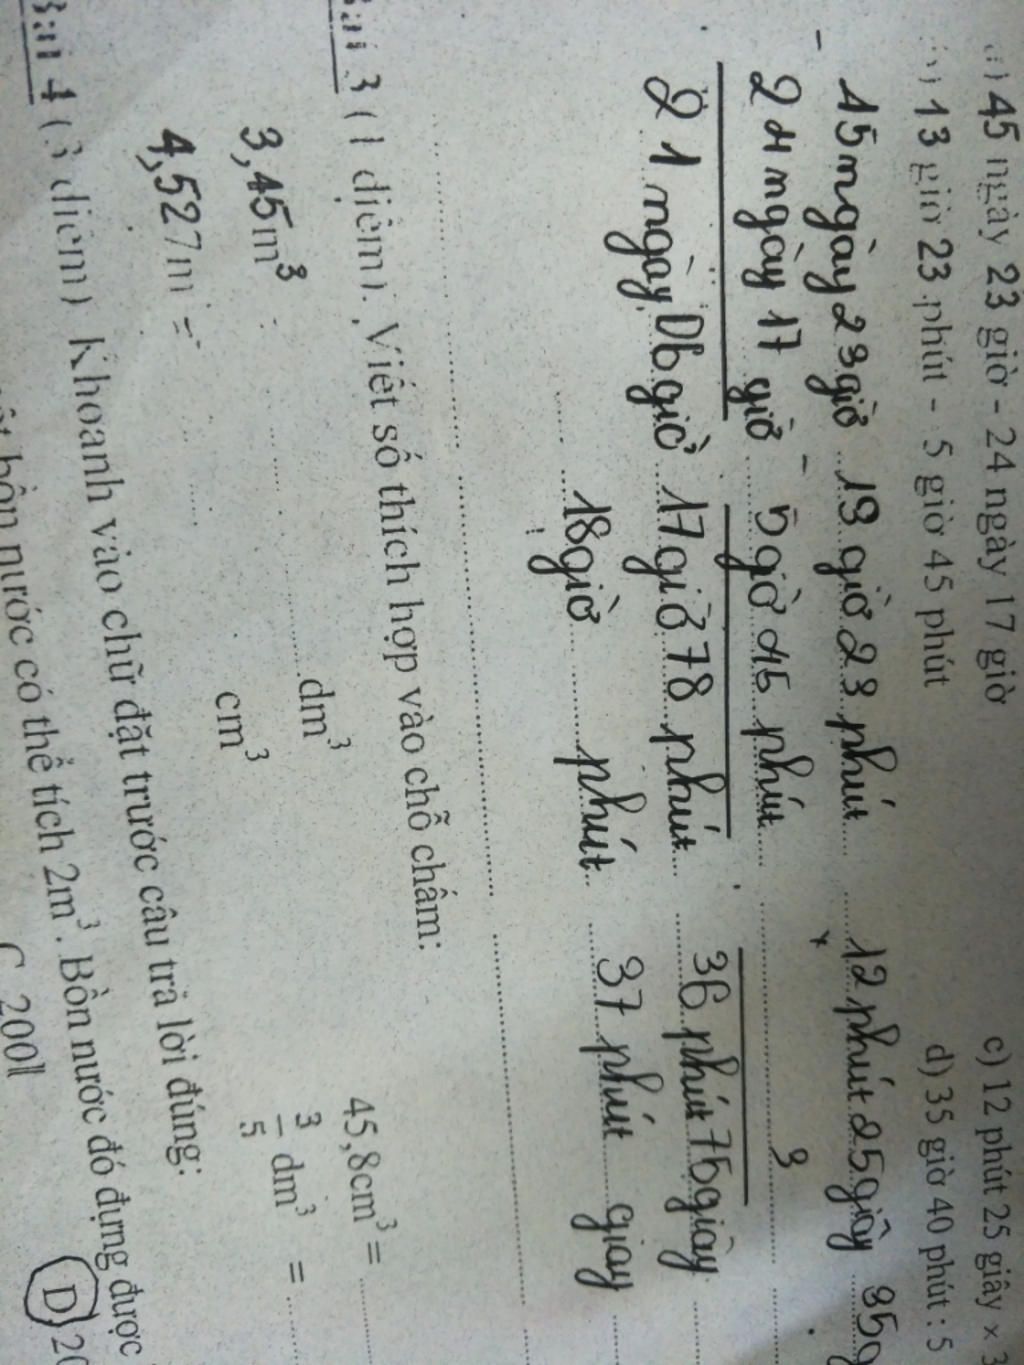 a) 45 ngày 23 giờ - 24 ngày 17 giờ c) 12 phút 25 giây × 3
b) 13 giờ 23 phút - 5 giờ 45 phút d) 35 giờ 40 phút : 5
- 45 ngày 23 giờ 19 giờ 23 phút × 12 phút 25 giây 35g
24 ngày 17 giờ - 5 giờ 45 phút 3
21 ngày 06 giờ 17 giờ 78 phút 36 phút 75 giây
18 giờ phút 37 phút giay
Bài 3 (1 điểm). Viết số thích hợp vào chỗ chấm:
3,45m³ dm³ 45,8cm³ =
4,527m = cm³ 3/5 dm³ =
Bài 4 (3 điểm) Khoanh vào chữ đặt trước câu trả lời đúng:
bồn nước có thể tích 2m³. Bồn nước đó đựng được
C 200l D 20